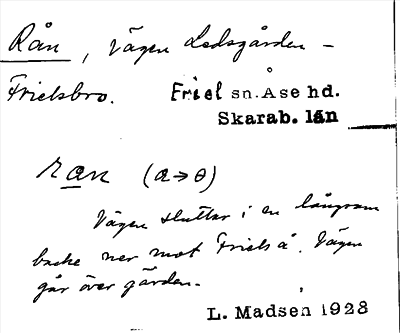 Rån, vägen Ledsgården -
Frielsbro. Friel sn. Åse hd.
Skarab. län
ran (a→ə)
Vägen sluttar i en långsam
backe ner mot Friels å. Vägen
går över gärden.
L. Madsen 1928